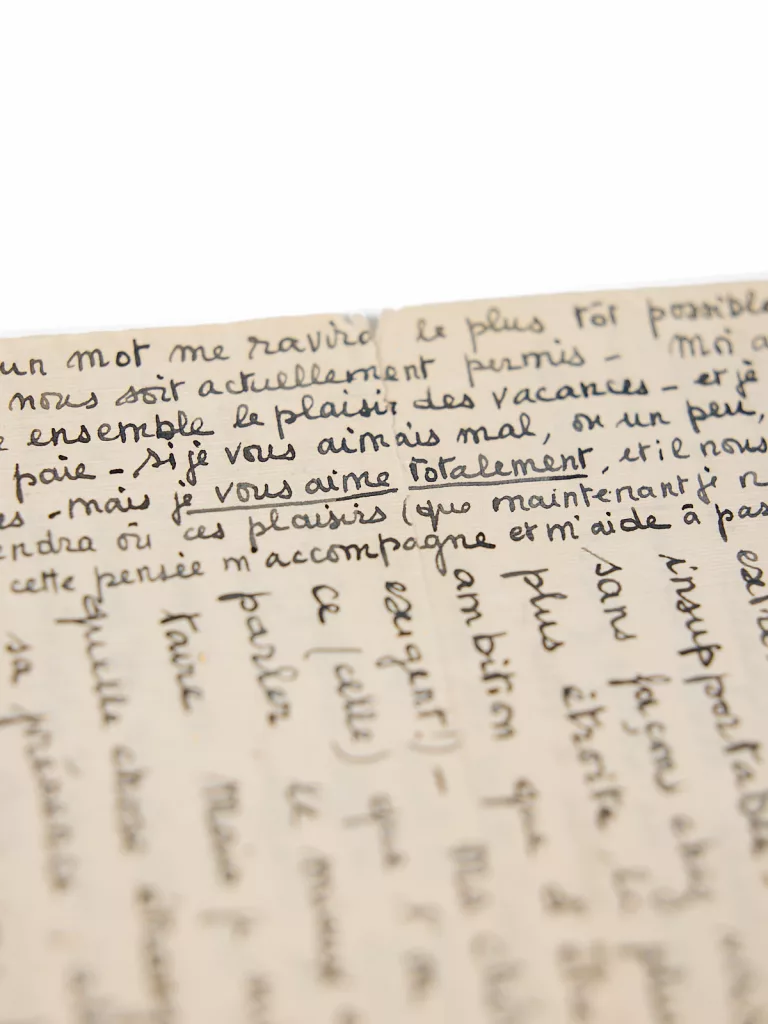 un mot me ravira le plus tôt possible
nous soit actuellement permis - Moi a
e ensemble le plaisir des vacances - et je
paie - si je vous aimais mal, ou un peu,
es - mais je vous aime totalement, et il nous
endra où ces plaisirs (que maintenant je n
cette pensée m'accompagne et m'aide à pas
extrê
insupportable
sans façons chez
plus étroite la plus
ambition que d'être
exigent!) - Ma
ce (celle) que l'on
parler le mieux
taire Mais je
quelle chose
sa